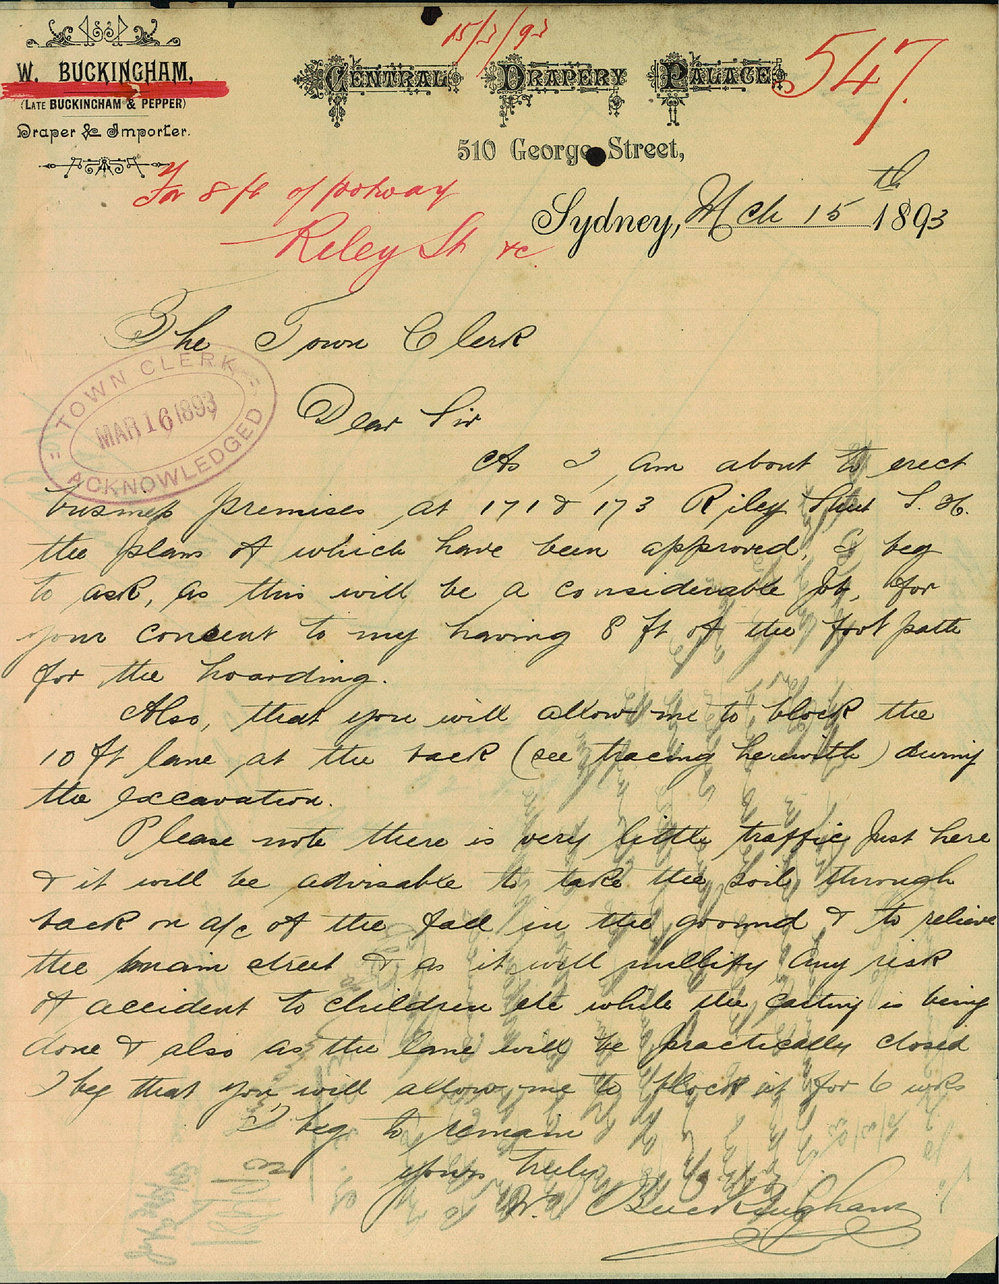 15/3/93
547.
W. BUCKINGHAM,
(LATE BUCKINGHAM & PEPPER)
Draper & Importer.
CENTRAL DRAPERY PALACE,
510 George Street,
Sydney, Mch 15th 1893
For 8 ft of potway
Riley St &c.
The Town Clerk
TOWN CLERK
MAR 16 1893
ACKNOWLEDGED
Dear Sir
As I am about to erect
business premises at 171 & 173 Riley Street S. H.
the plans of which have been approved, I beg
to ask, as this will be a considerable job, for
your consent to my having 8 ft of the foot path
for the hoarding.
Also, that you will allow me to block the
10 ft lane at the back (see tracing herewith) during
the excavation.
Please note there is very little traffic just here
& it will be advisable to take the soil through
back on a/c of the fall in the ground & to relieve
the main street & as it will nullify any risk
of accident to children etc while the carting is being
done & also as the lane will be practically closed
I beg that you will allow me to block it for 6 wks
I beg to remain
yours truly
W. Buckingham